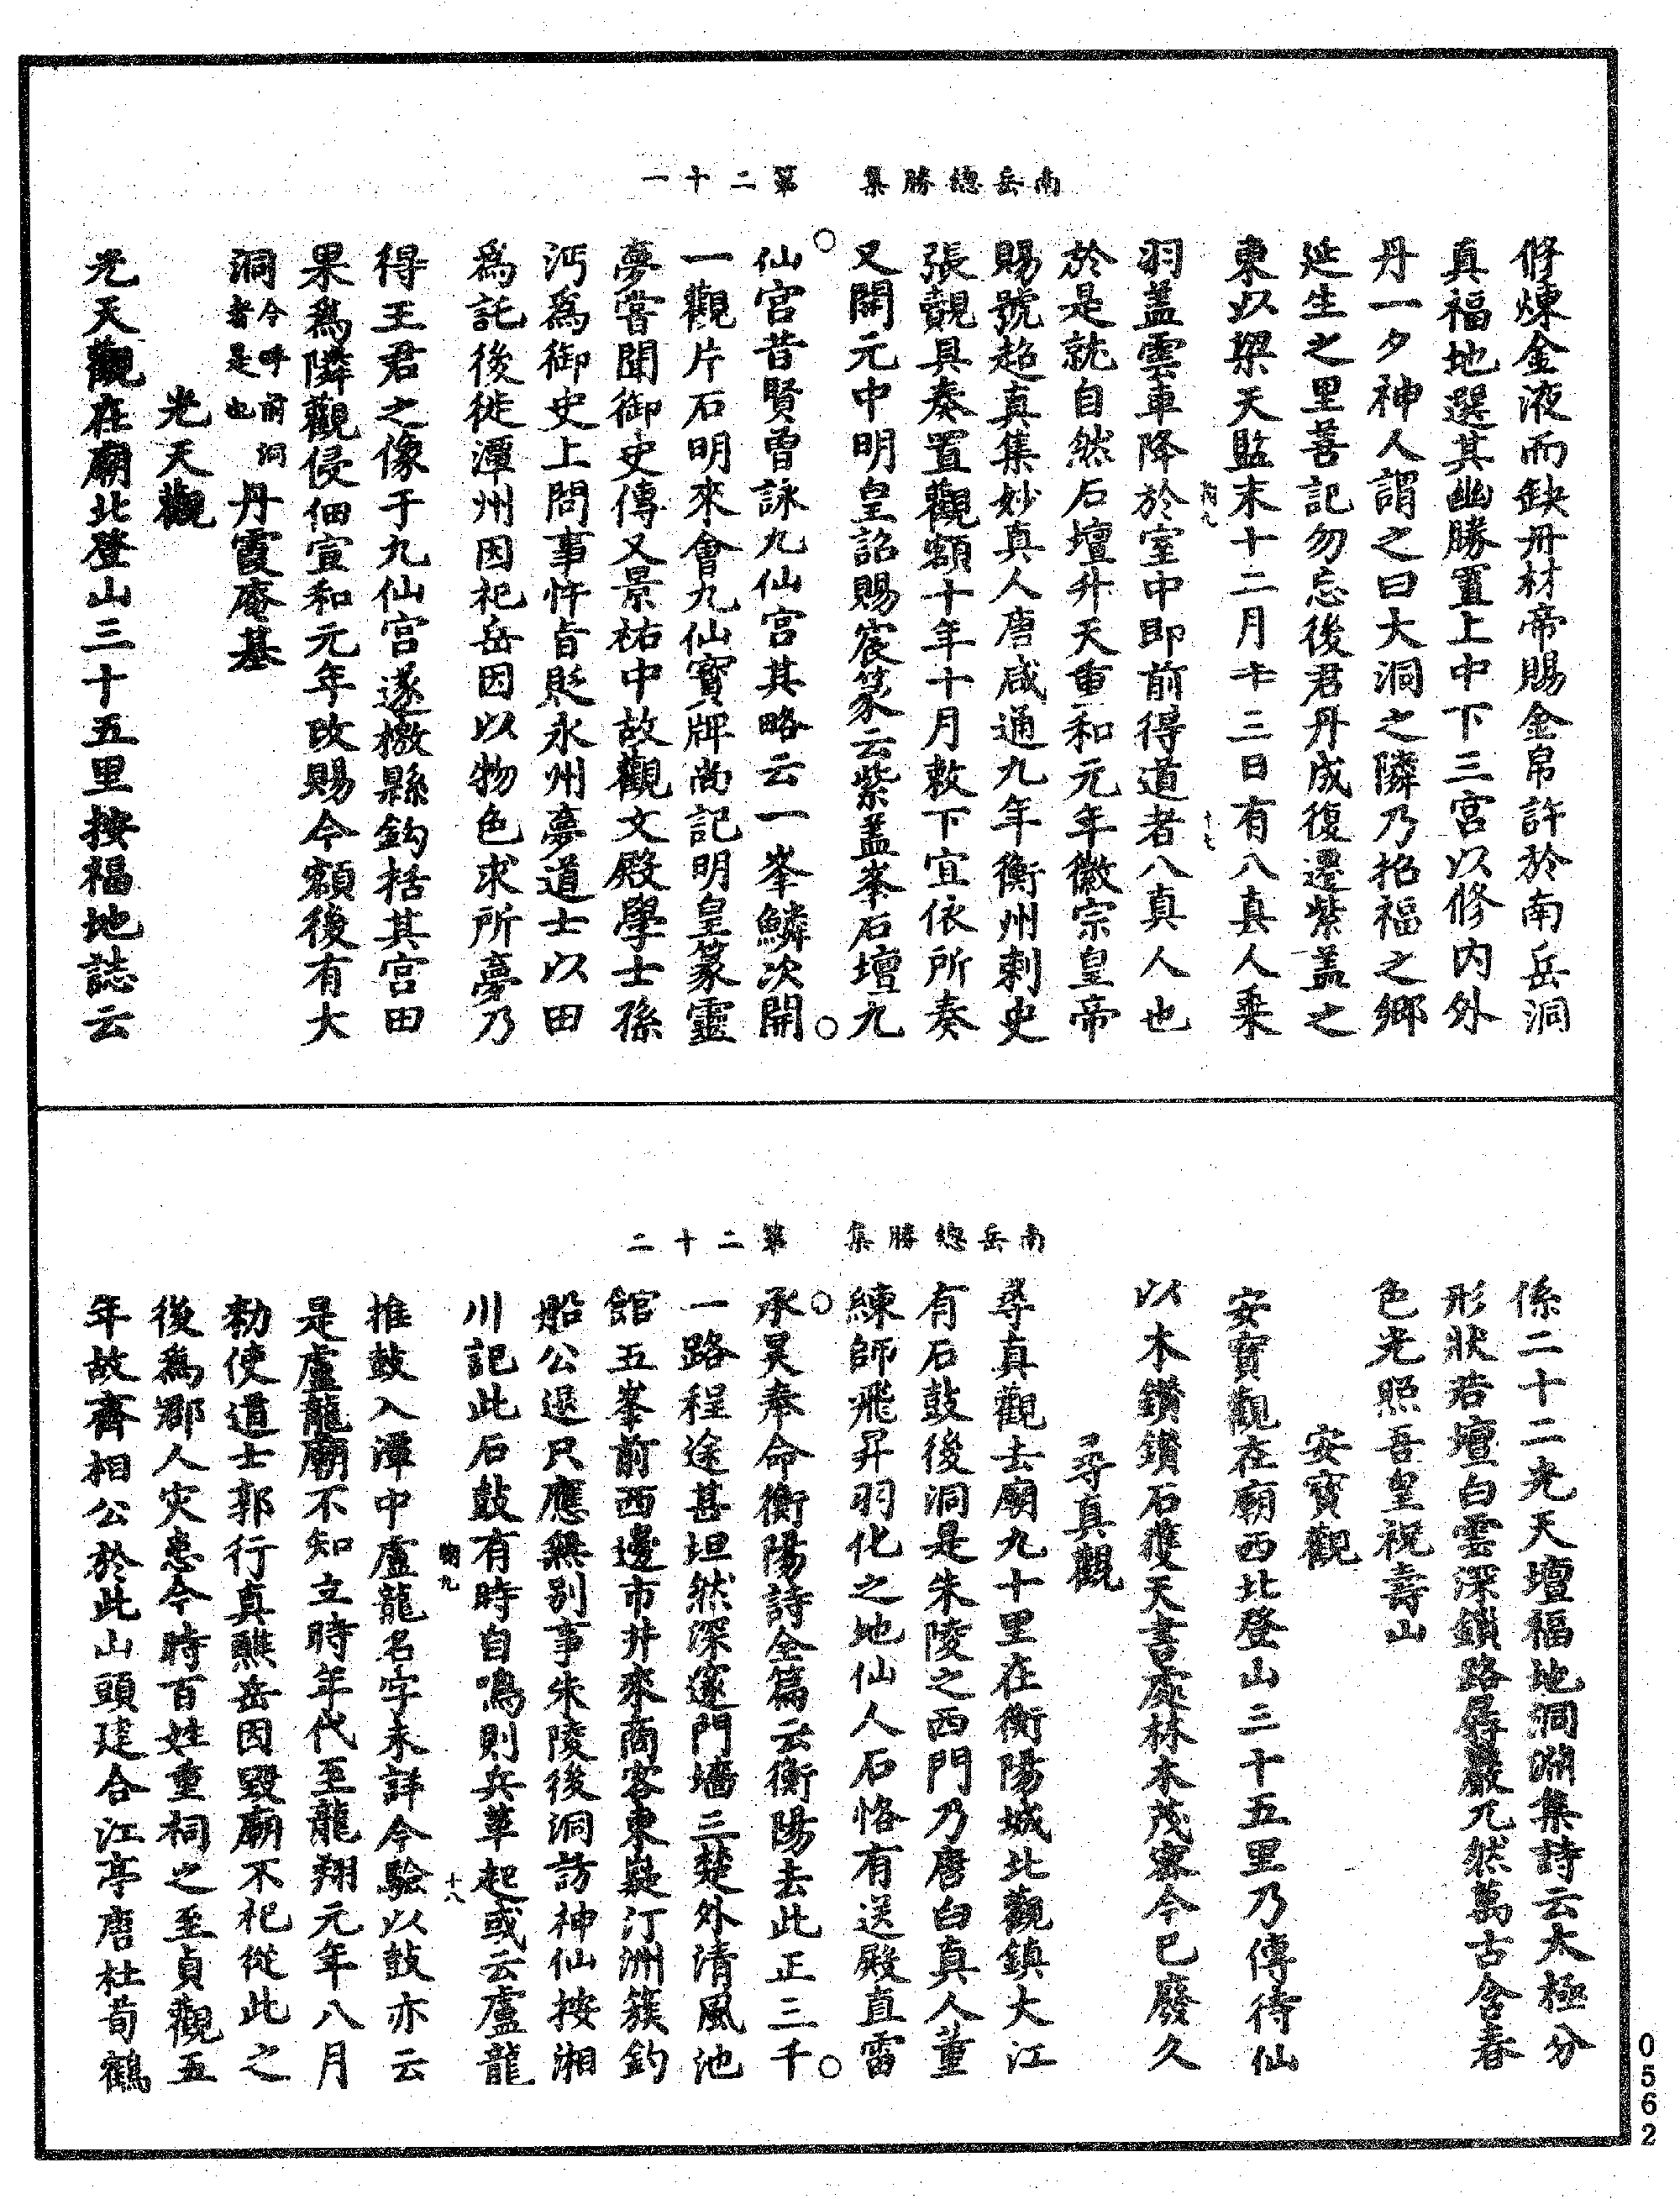 南岳總勝集　第二十一
修煉金液而缺丹材帝賜金帛許於南岳洞
真福地選其幽勝置上中下三宮以修內外
丹一夕神人謂之曰大洞之隣乃招福之鄉
延生之里善記勿忘後君丹成復還紫蓋之
東以梁天監末十二月卡三日有八真人乘
羽蓋雲車降於室中即前得道者八真人也
於是就自然石壇升天重和元年徽宗皇帝
賜號超真集妙真人唐咸通九年衡州刺史
張覿具奏置觀額十年十月敕下宜依所奏
又開元中明皇詔賜宸篆云紫蓋峯石壇九
仙宮昔賢曾詠九仙宮其略云一峯鱗次開
一觀片石明來會九仙寶牌尚記明皇篆靈
夢嘗聞御史傳又景祐中故觀文殿學士孫
沔為御史上問事忤旨貶永州夢道士以田
為託後徙潭州因祀岳因以物色求所夢乃
得王君之像于九仙宮遂檄縣鈎括其宮田
果為隣觀侵佃宣和元年改賜今額後有大
洞今呼前洞者是也丹霞庵基
光天觀
光天觀在廟北登山三十五里按福地誌云
南岳總勝集　第二十二
係二十二光天壇福地洞淵集詩云太極分
形狀若壇白雲深鎖路尋巖兀然萬古含春
色光照吾皇祝壽山
安寶觀
安寶觀在廟西北登山三十五里乃傳待仙
以木鑽鑽石獲天書處林木茂密今已廢久
尋真觀
尋真觀去廟九十里在衡陽城北觀鎮大江
有石鼓後洞是朱陵之西門乃唐白真人董
練師飛昇羽化之地仙人石恪有送殿直雷
承昊奉命衡陽詩全篇云衡陽去此正三千
一路程途甚坦然深邃門墻三楚外清風池
館五峯前西邊市井來商客東嶷汀洲簇釣
船公退只應無別事朱陵後洞訪神仙按湘
川記此石鼓有時自鳴則兵革起或云盧龍
推鼓入潭中盧龍名字未詳今驗以鼓亦云
是盧龍廟不知立時年代至龍翔元年八月
勑使道士郭行真醮岳因毀廟不祀從此之
後為郡人災患今時百姓重祠之至貞觀五
年故齊相公於此山頭建合江亭唐杜荀鶴
0562